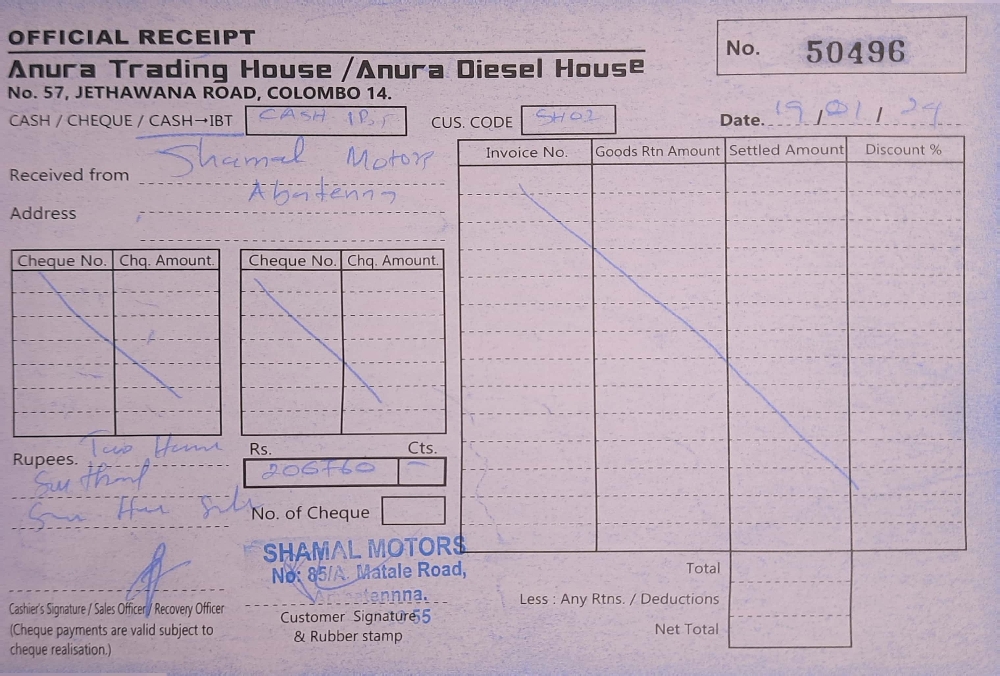 OFFICIAL RECEIPT
No. 50496
Anura Trading House /Anura Diesel House
No. 57, JETHAWANA ROAD, COLOMBO 14.
CASH / CHEQUE / CASH→IBT CASH IBT CUS. CODE SH02 Date. 19 / 01 / 24
Received from Shamal Motors
Address
Invoice No. Goods Rtn Amount Settled Amount Discount %
Cheque No. Chq. Amount. Cheque No. Chq. Amount.
Rupees. Two
Rs. Cts.
206760 —
No. of Cheque
SHAMAL MOTORS
No: 85/A. Matale Road,
Total
Less : Any Rtns. / Deductions
Net Total
Cashier's Signature / Sales Officer / Recovery Officer
(Cheque payments are valid subject to
cheque realisation.)
Customer Signature
& Rubber stamp